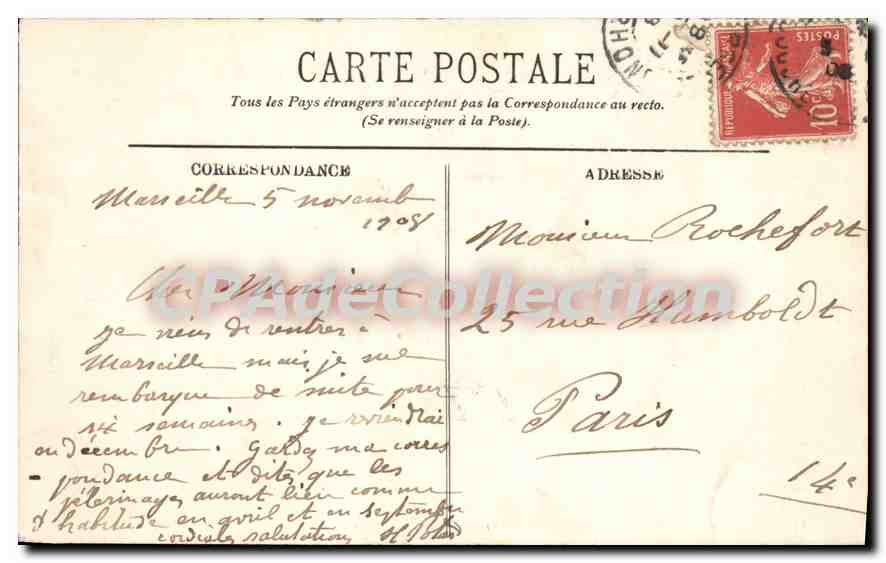 CARTE POSTALE
Tous les Pays étrangers n'acceptent pas la Correspondance au recto.
(Se renseigner à la Poste).
CORRESPONDANCE
Marseille 5 novemb
1908
Cher Monsieur
je viens de rentrer à
Marseille mais je me
rembarque de suite pour
semaines. je reviendrai
en décembre. Gardez ma corres
- pondance et dites que les
pélerinages auront lieu comme
d'habitude en avril et en septembre
cordiales salutations
ADRESSE
Monsieur Rochefort
25 rue Humboldt
Paris
14e
POSTES
REPUBLIQUE FRANÇAISE
10c
CPAdeCollection.com